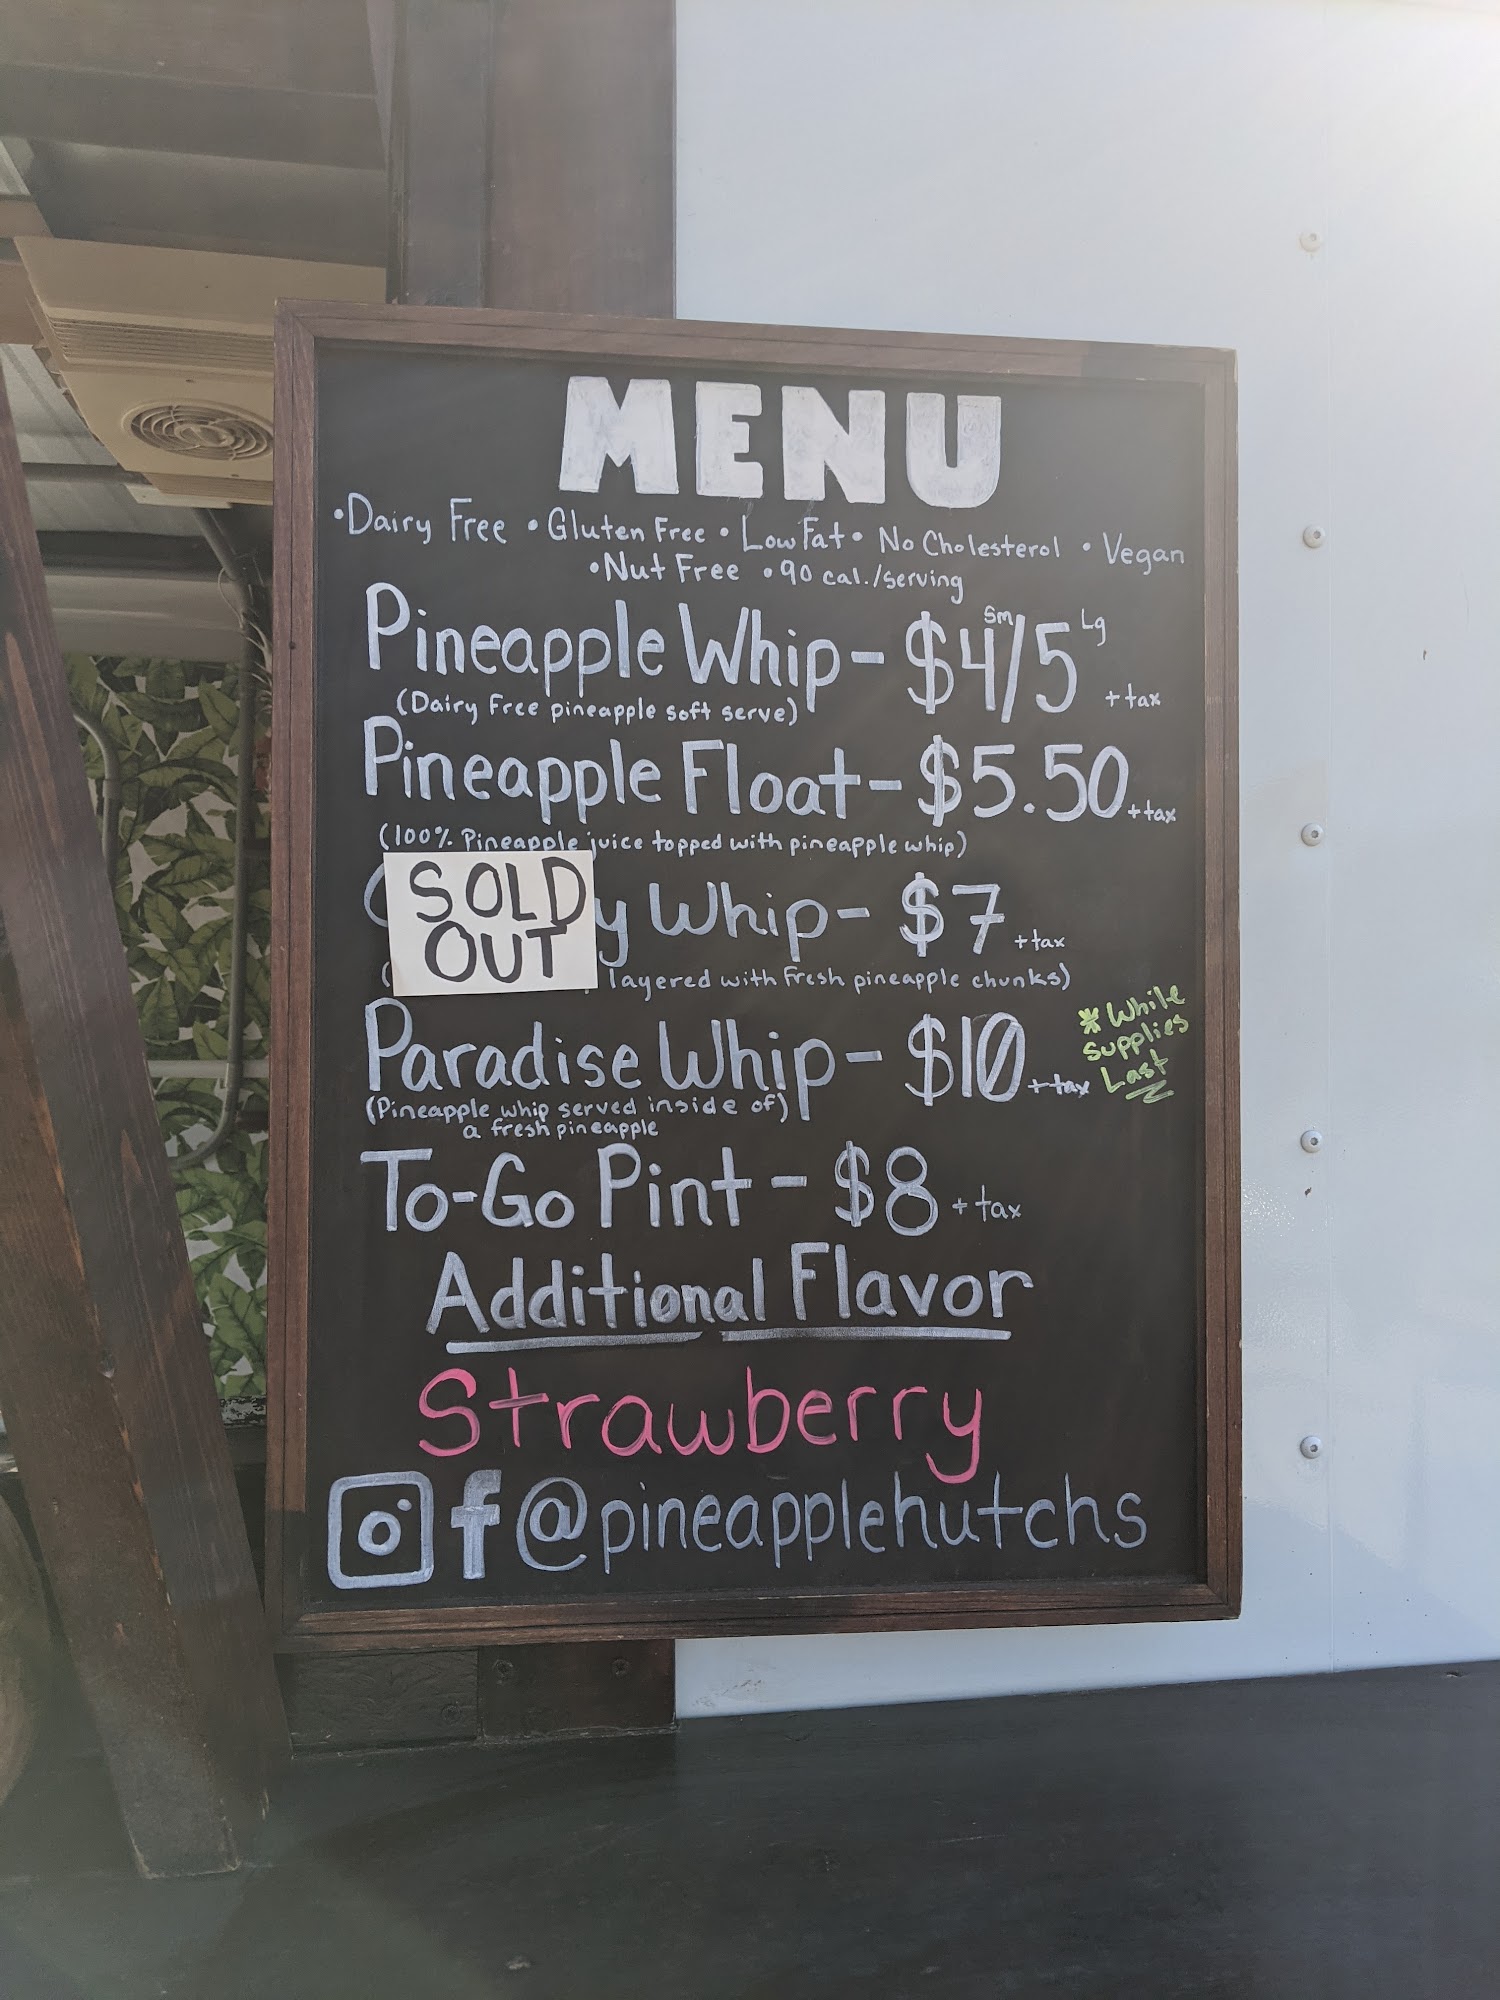 MENU
•Dairy Free •Gluten Free • Low Fat• No Cholesterol • Vegan
•Nut Free •90 cal./serving
Pineapple Whip- $4/5 Sm Lg + tax
(Dairy Free pineapple soft serve)
Pineapple Float- $5.50 + tax
(100% Pineapple juice topped with pineapple whip)
SOLD
OUT
Whip- $7 + tax
layered with fresh pineapple chunks)
Paradise Whip- $10 + tax
* While
Supplies
Last
(Pineapple whip served inside of)
a fresh pineapple
To-Go Pint - $8 + tax
Additional Flavor
Strawberry
f @pineapplehutchs